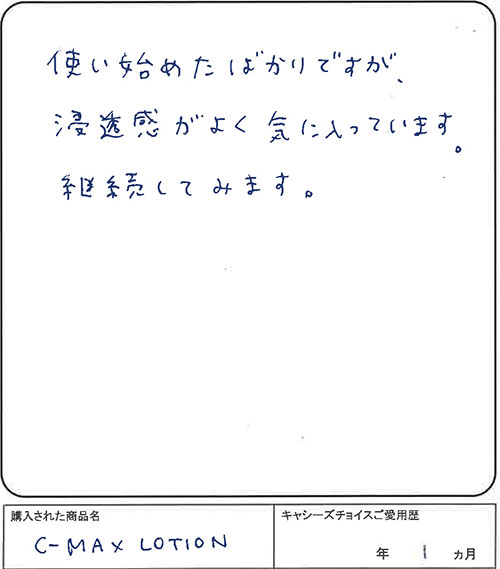 使い始めたばかりですが、
浸透感がよく気に入っています。
継続してみます。
購入された商品名
C-MAX LOTION
キャシーズチョイスご愛用歴
年 1 ヵ月